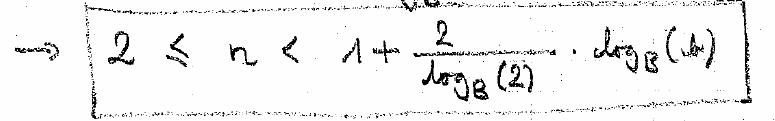 → 2 ≤ n < 1 + 2/log_B(2) · log_B(b)